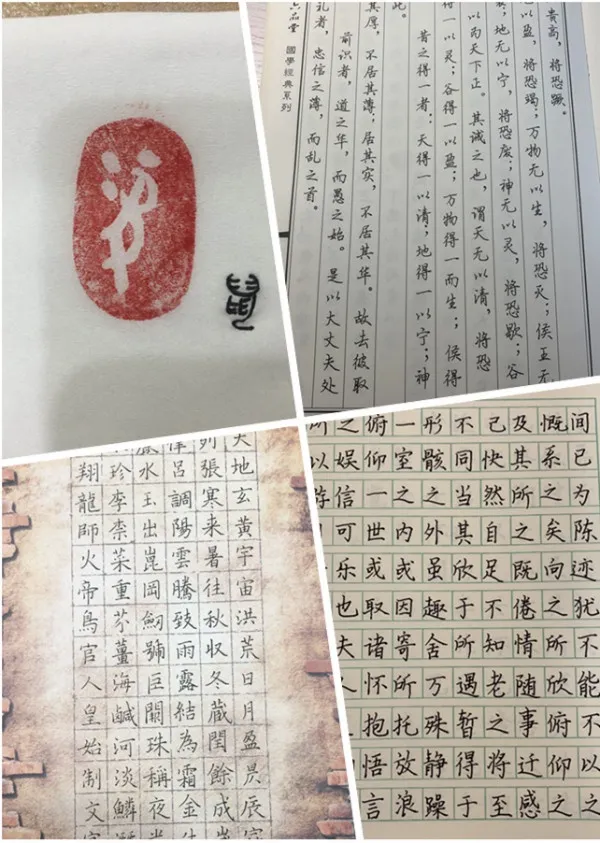 鼠
六品堂 國學經典系列
礼者，忠信之薄，而乱之首。
前识者，道之华，而愚之始。是以大丈夫处
其厚，不居其薄；居其实，不居其华。故去彼取
此。
昔之得一者：天得一以清；地得一以宁；神
得一以灵；谷得一以盈；万物得一而生；侯得
以为天下正。其诫之也，谓天无以清，将恐
地无以宁，将恐废；神无以灵，将恐歇；谷
以盈，将恐竭；万物无以生，将恐灭；侯王无
贵高，将恐蹶。
天地玄黃宇宙洪荒日月盈昃辰宿
列張寒来暑往秋収冬蔵閏餘成
律呂調陽雲騰致雨露結為霜金生
水玉出崑岡劍號巨闕珠稱夜光
珍李柰菜重芥薑海鹹河淡鱗
翔龍師火帝鳥官人皇始制文字
间已为陈迹犹不能不以之
慨系之矣向之所欣俯仰之
及其所之既倦情随事迁感
己快然自足不知老之将至
不同当其欣于所遇暂得于
形骸之外虽趣舍万殊静躁
一室之内或因寄所托放浪
俯仰一世或取诸怀抱悟言
之娱信可乐也夫人
所以游